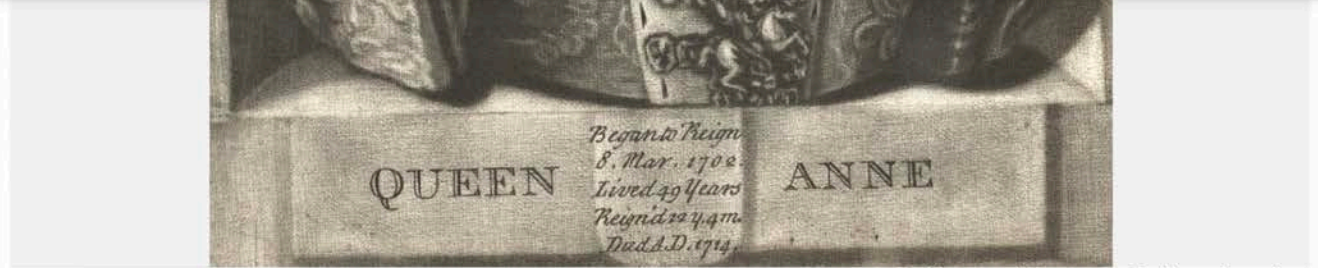 QUEEN
Began to Reign
8. Mar. 1702.
Lived 49 Years
Reign'd 12 y. 4 m.
Died A.D. 1714.
ANNE